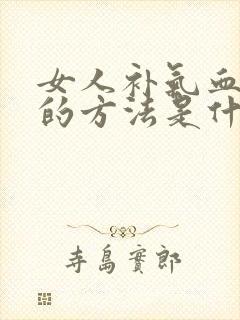 女人补氣血
的方法是什
寺島實郎